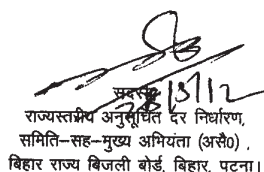 सदस्य
28/3/12
राज्यस्तरीय अनुसूचित दर निर्धारण,
समिति-सह-मुख्य अभियंता (असै०) ,
बिहार राज्य बिजली बोर्ड, बिहार, पटना।